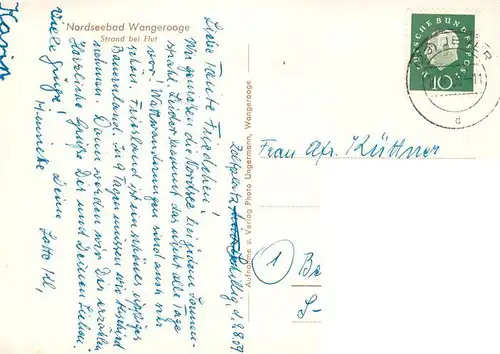 Nordseebad Wangerooge
Strand bei Flut
Zeltplatz Schillig, d. 2.8.59
Liebe Tante Friedchen!
Wir genießen die Nordsee bei jedem Sonnen-
strahl. Leider kommt das nicht alle Tage
vor! Wattwanderungen sind auch sehr
schön. Friesland ist ein schönes, üppiges
Bauernland. In 9 Tagen müssen wir Abschied
nehmen. Dann werden wir Dir erzählen.
Herzliche Grüße Dir und Deinen Lieben.
Deine
Viele Grüße!
Karin
Aufnahme u. Verlag Photo Ungermann, Wangerooge
DEUTSCHE BUNDESPOST
10
d
Frau Afr. Küttner
1
Be
S-